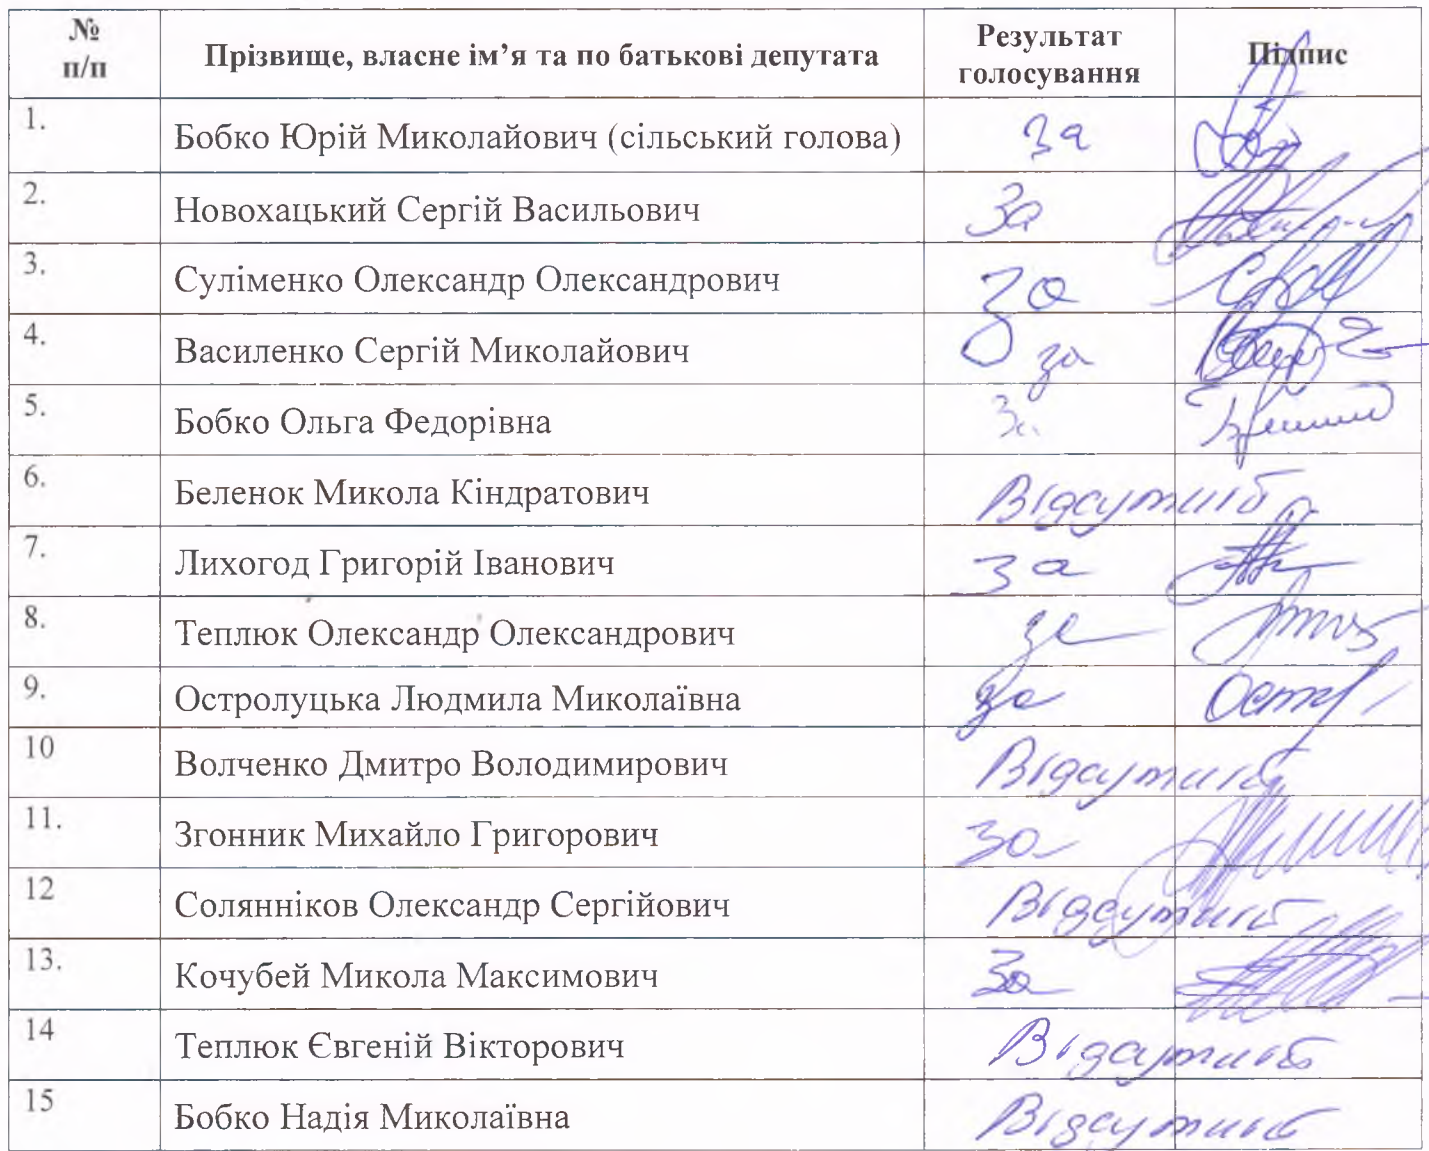 № п/п Прізвище, власне ім’я та по батькові депутата Результат голосування Підпис
1. Бобко Юрій Миколайович (сільський голова) За
2. Новохацький Сергій Васильович За
3. Суліменко Олександр Олександрович За
4. Василенко Сергій Миколайович за
5. Бобко Ольга Федорівна За
6. Беленок Микола Кіндратович Відсутній
7. Лихогод Григорій Іванович За
8. Теплюк Олександр Олександрович за
9. Остролуцька Людмила Миколаївна за
10 Волченко Дмитро Володимирович Відсутній
11. Згонник Михайло Григорович За
12 Солянніков Олександр Сергійович Відсутній
13. Кочубей Микола Максимович За
14 Теплюк Євгеній Вікторович Відсутній
15 Бобко Надія Миколаївна Відсутній